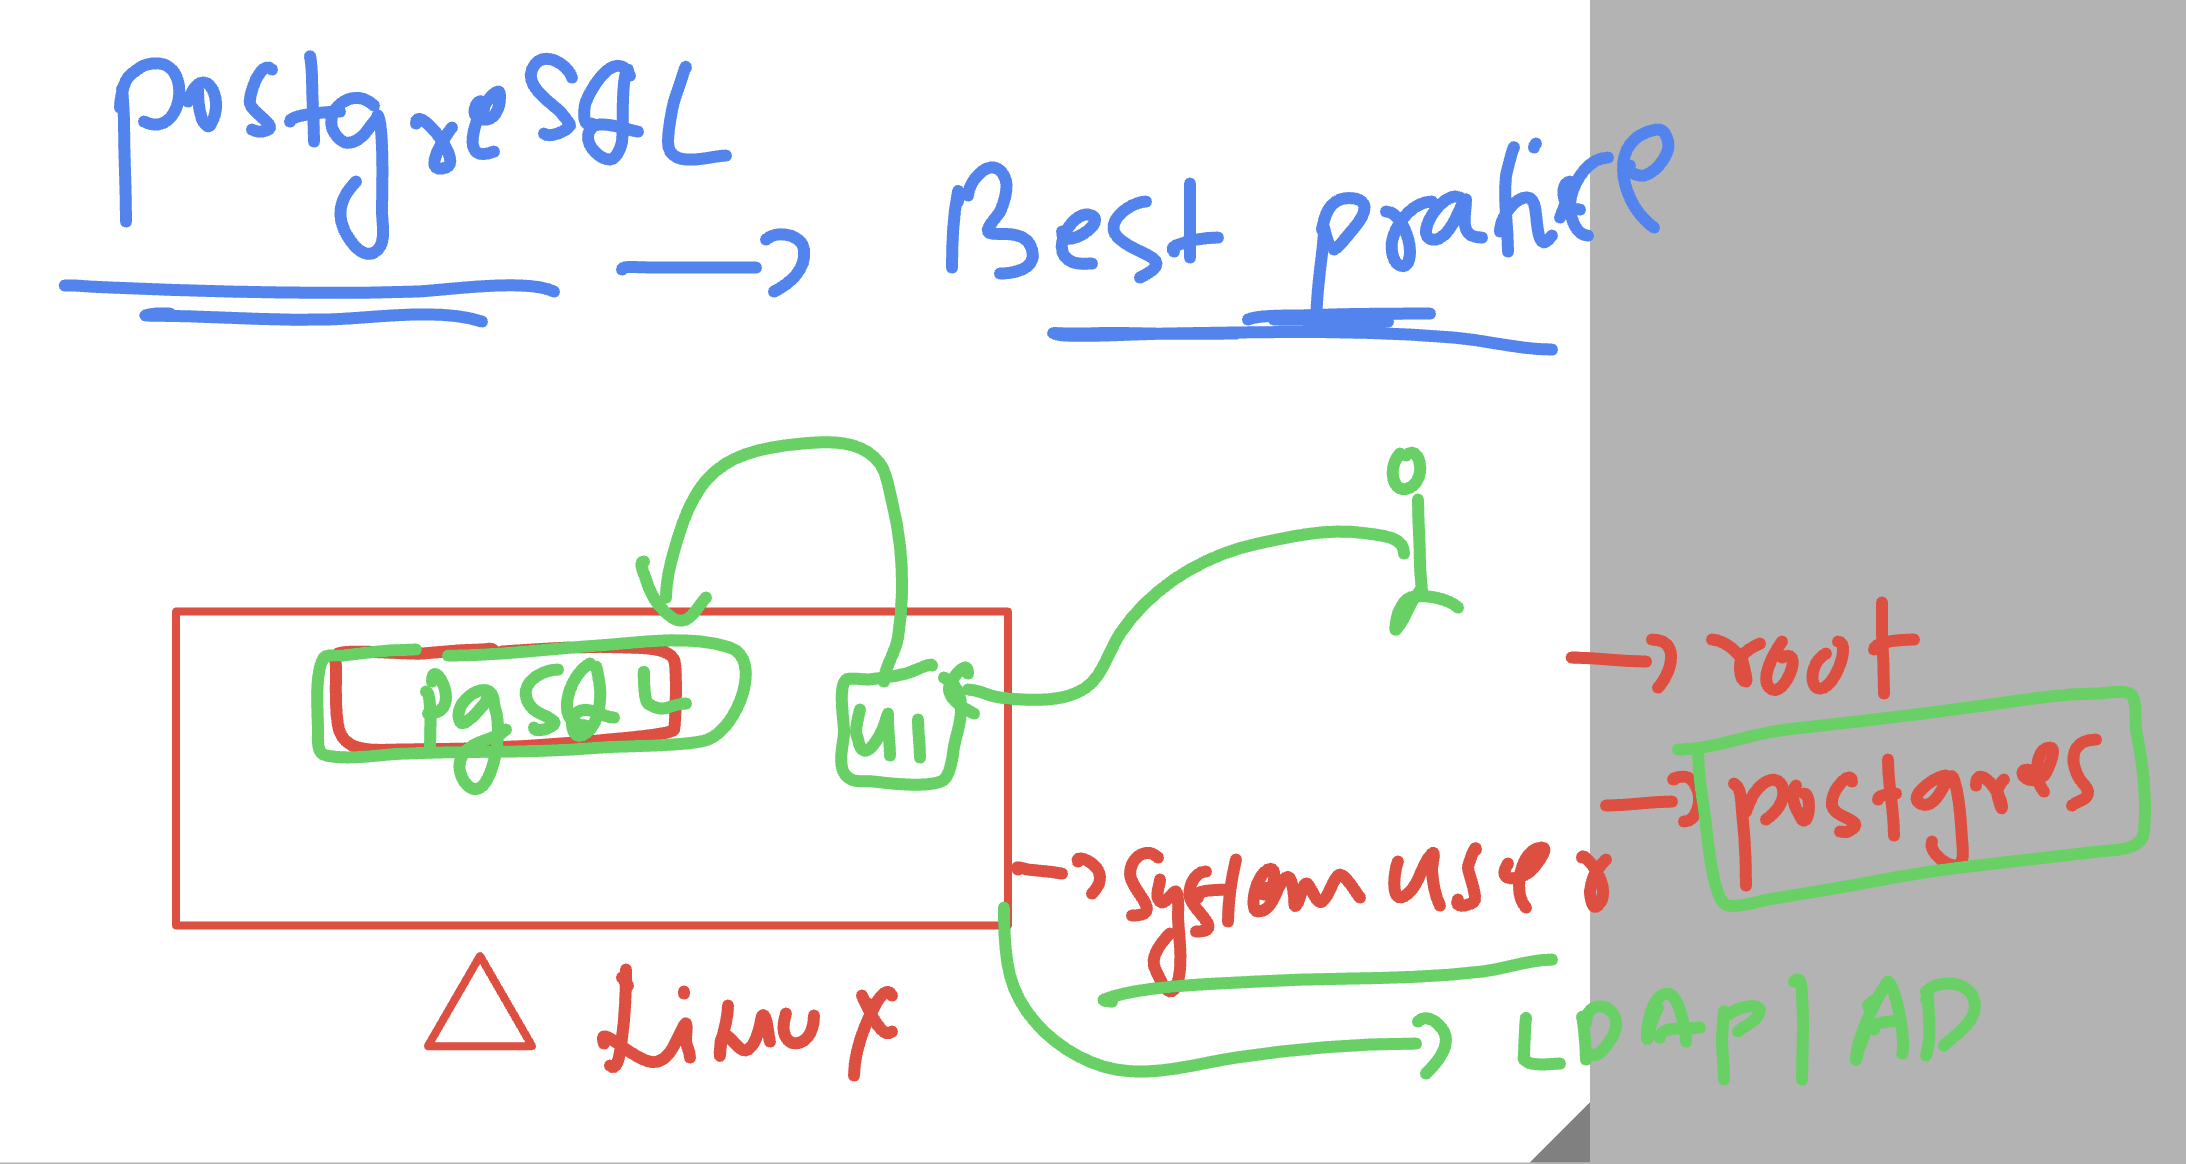 postgreSQL
→ Best pratice
pgSQL
UI
→ root
→ postgres
→ system user
Linux
→ LDAP | AD